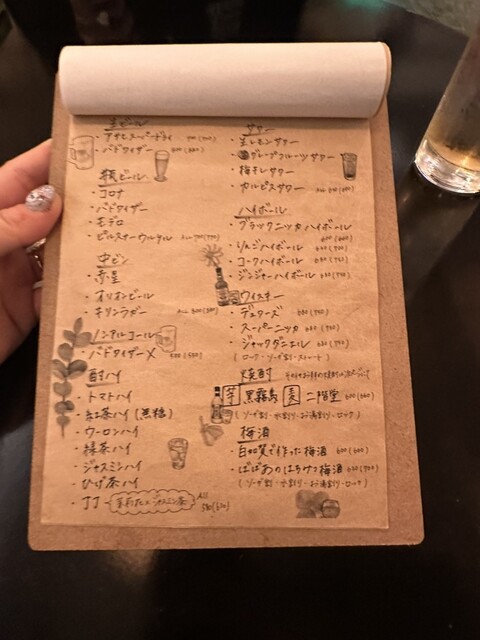 生ビール
・アサヒスーパードライ
・バドワイザー
瓶ビール
・コロナ
・バドワイザー
・モデロ
・ピルスナーウルケル ALL 700(770)
中ビン
・赤星
・オリオンビール
・キリンラガー ALL
ノンアルコール
・バドワイザー
酎ハイ
・トマトハイ
・紅茶ハイ(無糖)
・ウーロンハイ
・緑茶ハイ
・ジャスミンハイ
・ひげ茶ハイ
・JJ ジャスミン茶 ALL
サワー
・生レモンサワー
・グレープフルーツサワー
・梅干しサワー
・カルピスサワー ALL
ハイボール
・ブラックニッカハイボール
600(660)
・りんごハイボール
・コークハイボール
・ジンジャーハイボール
ウイスキー
・デュワーズ
・スーパーニッカ
・ジャックダニエル
(ロック・ソーダ割・ストレート)
焼酎
芋 黒霧島 麦 二階堂 600(660)
(ソーダ割・水割り・お湯割り・ロック)
梅酒
・自家製で作った梅酒 600(660)
・ばばあのはちみつ梅酒
(ソーダ割・水割り・お湯割り・ロック)